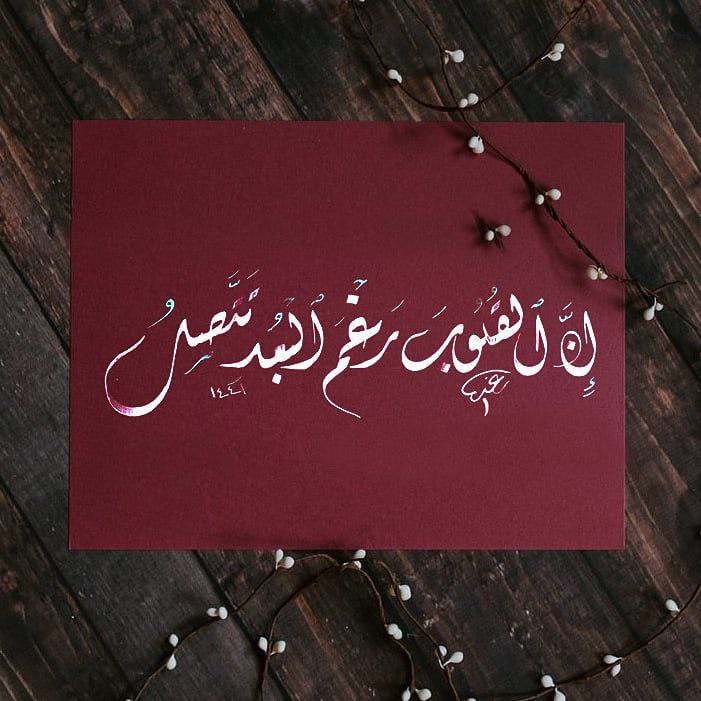 إِنَّ ٱلقُلُوبَ رَغْمَ ٱلبُعْدِ تَتَّصِلُ
١٤٤١